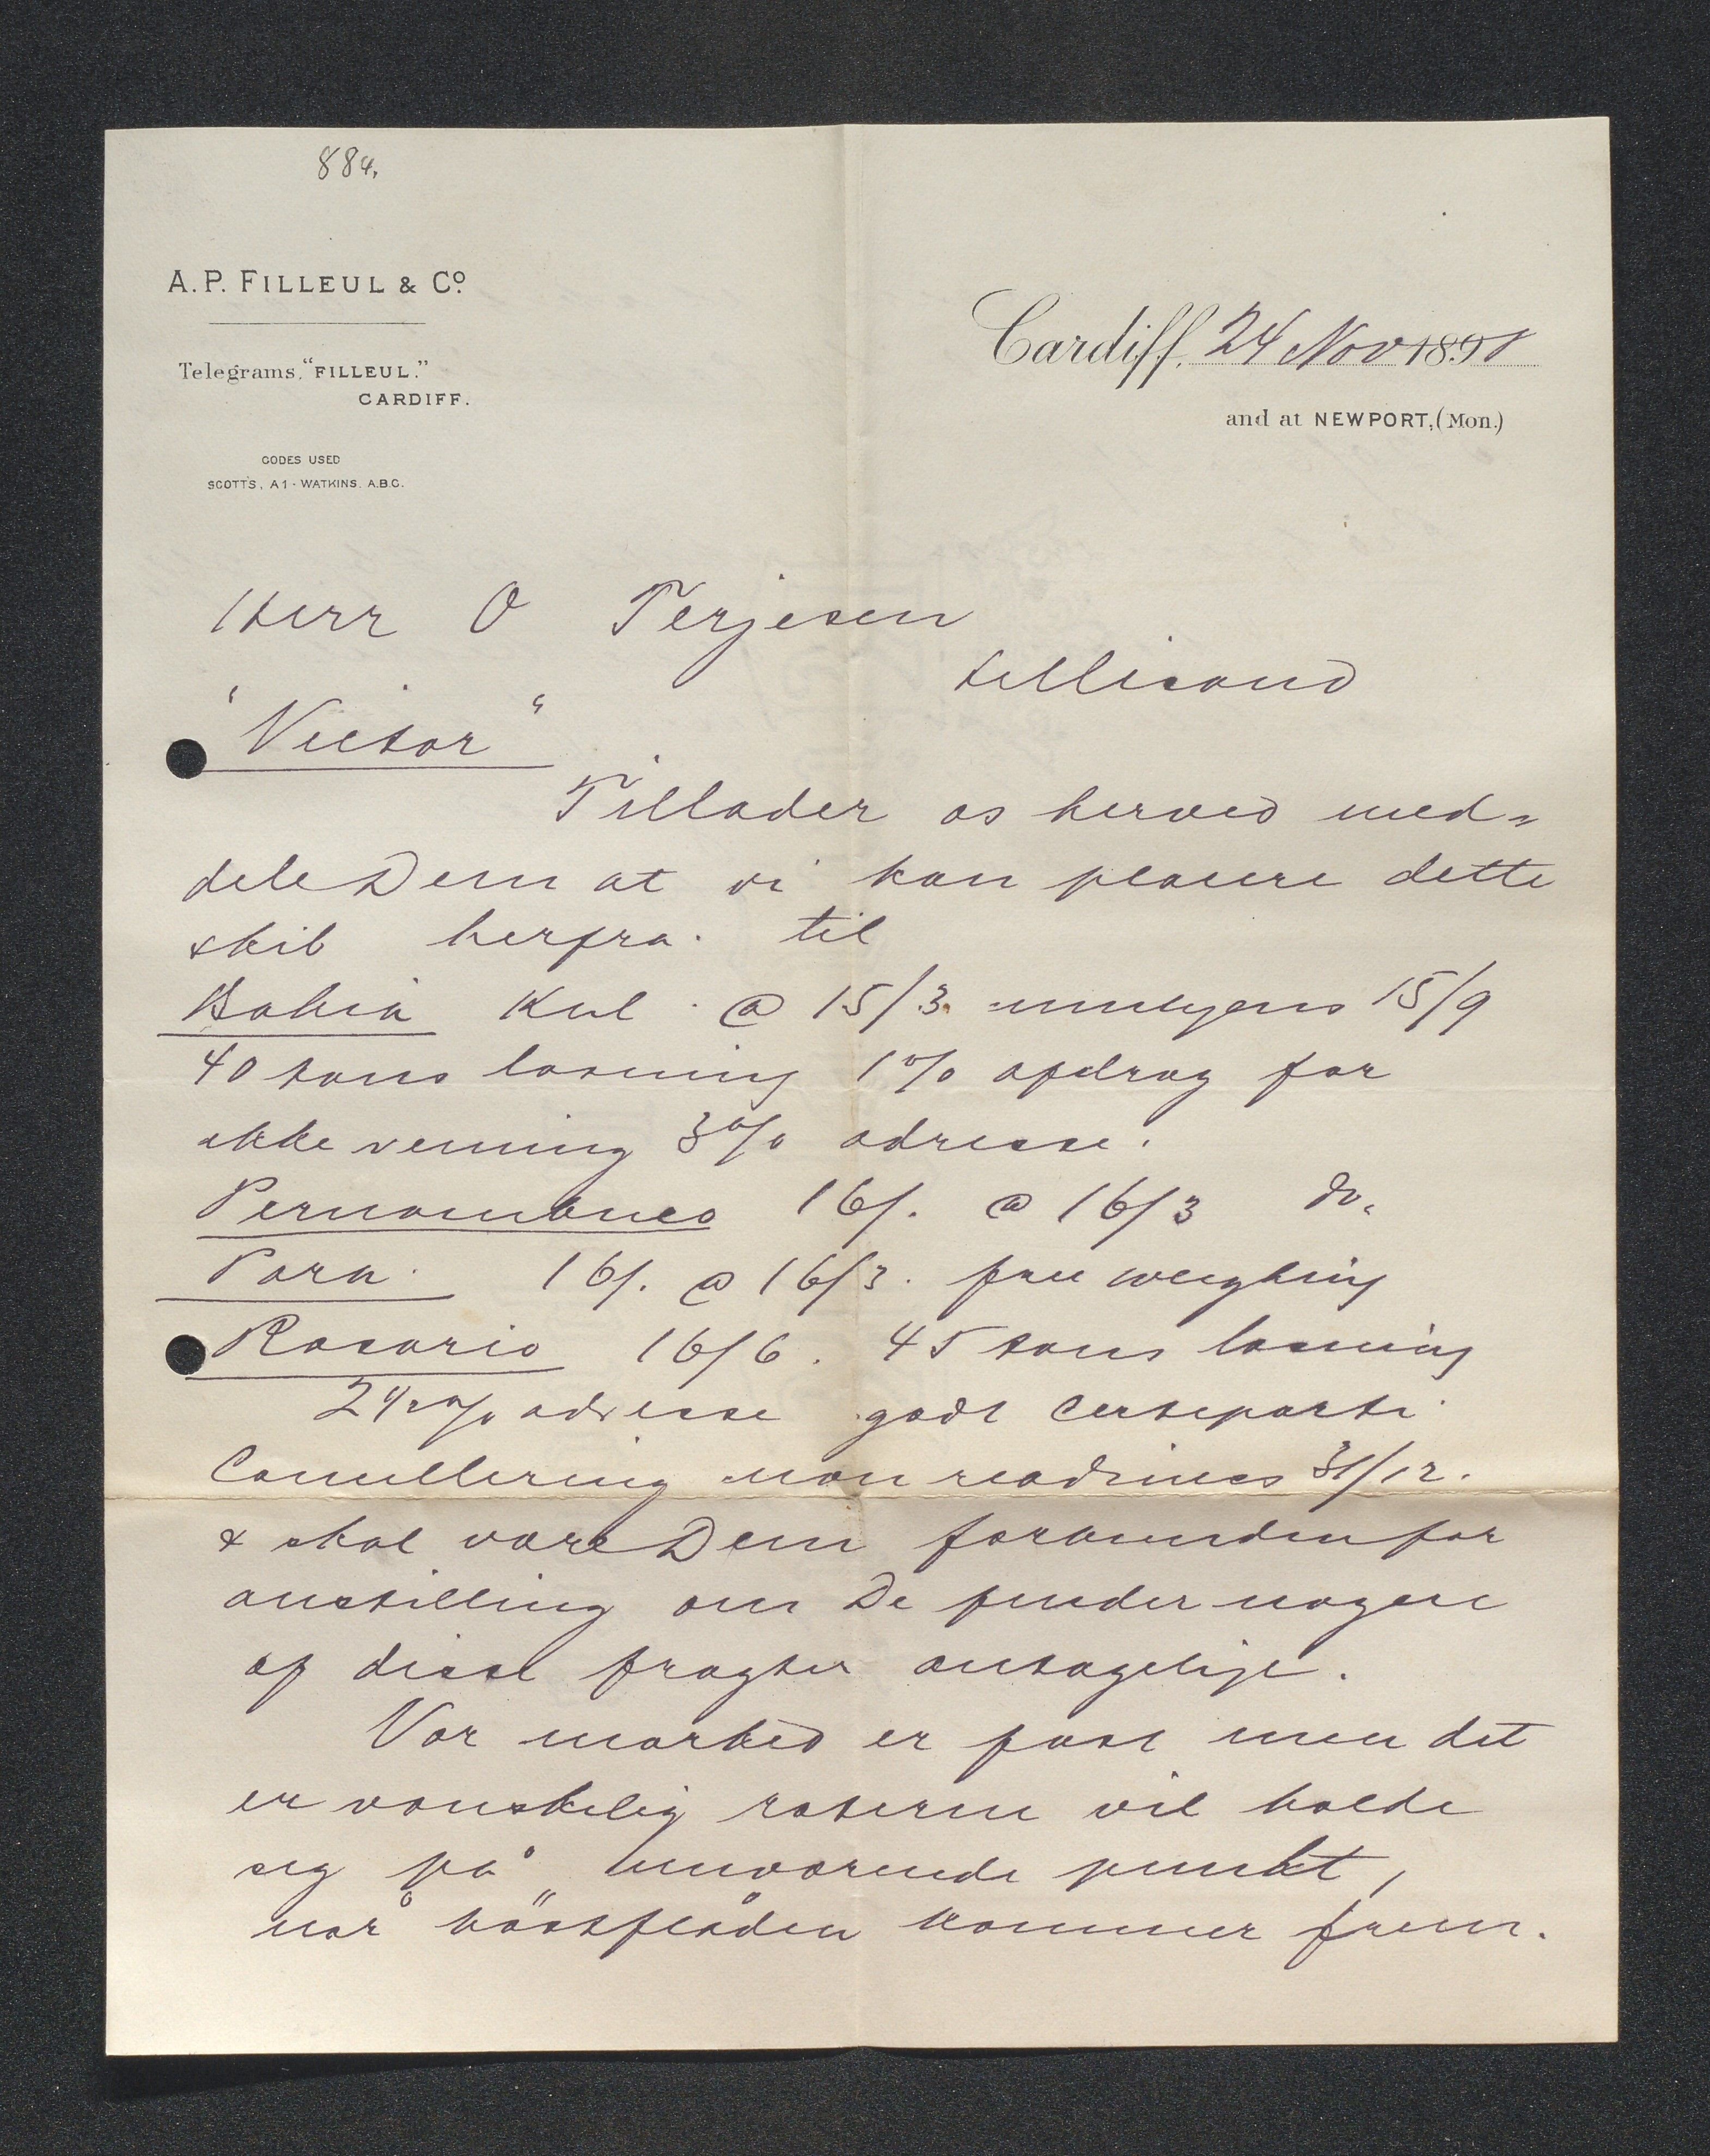 884.
A. P. FILLEUL & Cº.
Telegrams, "FILLEUL."
CARDIFF.
CODES USED
SCOTTS, A1 - WATKINS. A.B.C.
Cardiff, 24 Nov 1898
and at NEWPORT, (Mon.)
Herr O Terjesen
Lillisand
"Victor"
Tillader os herved med-
dele Dem at vi kan placere dette
skib herfra til
Bahia Kul @ 15/3 muligens 15/9
40 tons losning 1% afdrag for
ikke veining 3% adresse.
Pernambuco 16/. @ 16/3 do.
Para 16/. @ 16/3. free weighing
Rosario 16/6. 45 tons losning
2½% adresse godt Certeparti
Cancellering non readiness 31/12.
& skal være Dem forbunden for
anstilling om De finder nogen
af disse fragter antagelige.
Vor marked er fast men det
er vanskelig raterne vil holde
seg på nuværende punkt,
når höstflåden kommer frem.